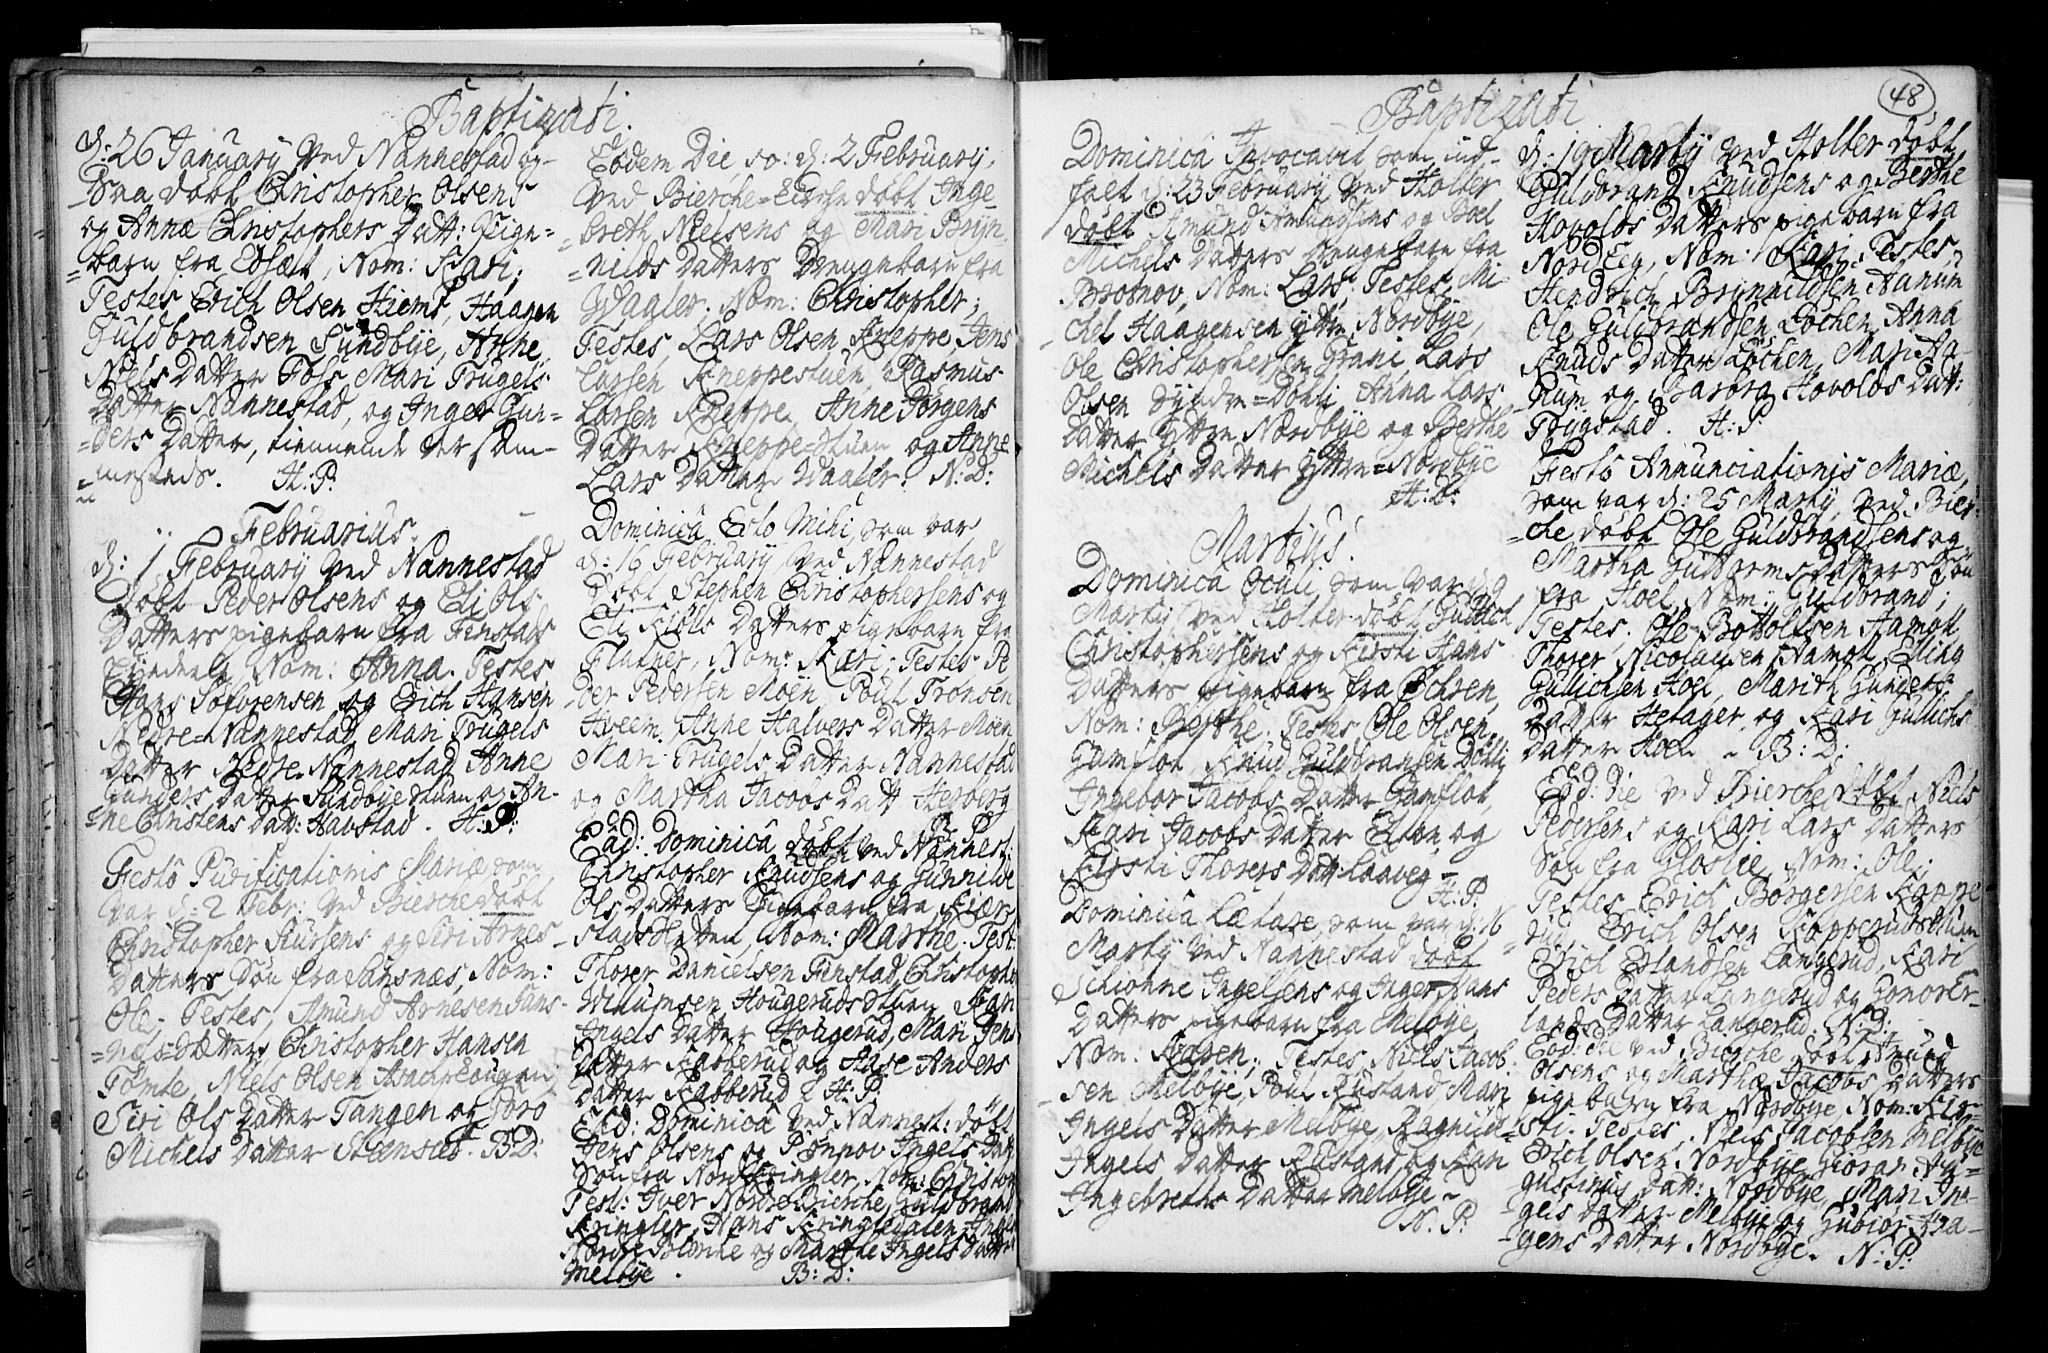 Baptizati.
d: 26 January ved Nannestad og-
-saa döbt Christopher Olsens
og Annæ Christophers Datt: Pige-
=barn fra Nom: Kari;
Testes Erich Olsen Hiems, Haagen
Guldbrandsen Sundbÿe, Anne
Niels Datter Fols Mari Trugels
Datter Nannestad, og Inger Gun-
=ders Datter, tiennende ver sam-
=mesteds. H. P.
Februarius.
d: 1 February ved Nannestad
Döbt Peder Olsens og Eli Ols
Datters pigebarn fra Finstads
Nom: Anna. Testes
Hans Sefvrensen og Erich Hansen
Nedre=Nannestad Mari Trugels
Datter Nedre Nannestad Anne
Gunders Datter Sundbÿe stuen og An-
=ne Christens Dat: Havstad. H: P:
Festo Purificationis Mariæ, som
var d: 2 Febr: ved Bierche döbt
Christopher Siursens og Siri Arnes
Datters Sön fra Nom:
Ole; Testes, Amund Arnesen
Christopher Hansen
Tömte, Niels Olsen
Siri Ols Datter Tangen og Goro
Michels Datter Steensæt. B: D:
Eodem Die so: d: 2 February,
ved Bierche=Kirche döbt Inge
=breth Nielsens og Mari Brÿn
=nilds Datters Drengebarn fra
Waaler. Nom: Christopher;
Testes, Lars Olsen Kneppe, Jens
Larsen Kneppestuen, Rasmus
Larsen Kneppe, Anne Jörgens
Datter Kneppe=stuen og Anne
Lars Datter Waaler. N: D:
Dominica Esto Mihi, som var
d: 16 February, ved Nannestad
Döbt Stephen Christophersens og
Eli Kiölls Datters pigebarn fra
Flatner, Nom: Kari. Testes Pe
der Pedersen Moen, Poul Tronsen
Aveem, Anne Halvors Datter Moen
Mari Trugels Datter Nannestad
og Martha Jacobs Datt
H: P:
Ead: Dominica döbt ved Nannest:
Christopher Knudsens og Gunnilde
Ols Datters Pigebarn fra Kiær-
Nom: Marthe. Test:
Thorer Danielsen Finstad, Christopher
Hougeruds stuen Kari
Ingels Datter Hougerud, Mari Jens
Datter Kasberud og Aase Anders
Datter Kabberud. H: P:
Ead: Dominica ved Nannest: döbt
Jens Olsens og Rönnov Ingels Datt
Sön fra Nordkringler, Nom: Christop
Test: Iver Nordre Bierche, Guldbrand
Kringler, Hans Kringledalen, Inge
Nordre Bierche og Marthe Ingels Datter
Melbÿe. B: D:
Baptizati
48
Dominica Invocavit som ind-
falt d: 23 February ved Holter
döbt Amund Amundsens og Boel
Michels Datters Drengebarn fra
Brotnov, Nom: Lars, Testes Mi-
chel Haagensen ÿttre Nordbÿe,
Ole Christophersen Grani, Lars
Olsen Söndre=Döhli Anna Lars
Datter ÿttre Nordbÿe og Berthe
Michels Datter ÿttre=Nordbÿe
H: D:
Martius.
Dominica Oculi, som var d: 9
Martÿ, ved Holter döbt Gullich
Christophersens og Kirsti Hans
Datters pigebarn fra Ochsen,
Nom: Berthe. Testes Ole Olsen
Gamflot, Knud Guldbransen Döhli
Ingebor Jacobs Datter Gamflot,
Kari Jacobs Datter Elton og
Kirsti Thorers Datt: Laaveg-
H: P:
Dominica Lætare, som var d: 16
Martÿ ved Nannestad döbt
Schiohne Ingelsens og Inger Hans
Datters pigebarn fra Melbÿe,
Nom: Karen; Testes Niels Jacob-
sen Melbÿe, Poul Rustand Mari
Ingels Datter Melbÿe, Ragnild
Ingels Datter Rustand og Kari
Ingebreths Datter Melbÿe-
N. P:
d: 19 Martÿ ved Holter döbt
Guldbrand Knudsens og Berthe
Hovolds Datters pigebarn fra
Nordeeg, Nom: Kari. Testes,
Hendrich Brynnildsen Aanum
Ole Guldbrandsen Löchen Anna
Knuds Datter Löchen, Mari Aa-
num og Barbra Hovolds Datt:
Trygstad. H. P.
Festo Annunciationis Mariæ,
som var d: 25 Martÿ, ved Bier-
=che döbt Ole Guldbrandsens og
Martha Guttorms Datters Sön
fra Hoel, Nom: Guldbrand;
Testes, Ole Bottolfsen Aamot
Thorer Nicolausen Aamot, Elling
Gullichsen Hoel, Marith Gunders
Datter Hetager og Kari Gullichs
Datter Hoel - B: D:
Eod: die ved Bierche döbt Niels
Pedersens og Kari Lars Datters
Sön fra Gloslie, Nom: Ole;
Testes Erich Börgersen Koppe
rud, Erich Olsen Kopperudstuen
Erich Erlandsen Langerud, Kari
Peders Datter Langerud og Gonor Er-
lands Datter Langerud. N: D:
Eod: die ved Bierche döbt Amund
Olsens og Marthæ Jacobs Datters
pigebarn fra Nordbÿe, Nom: Kir-
=sti. Testes, Niels Jacobsen Melbÿe
Erich Olsen Nordbÿe, Giöran Au-
gustinus Datt: Nordbÿe, Mari In-
gels Datter Melbÿe og Gubior Haa-
gens Datter Nordbÿe. N: P: